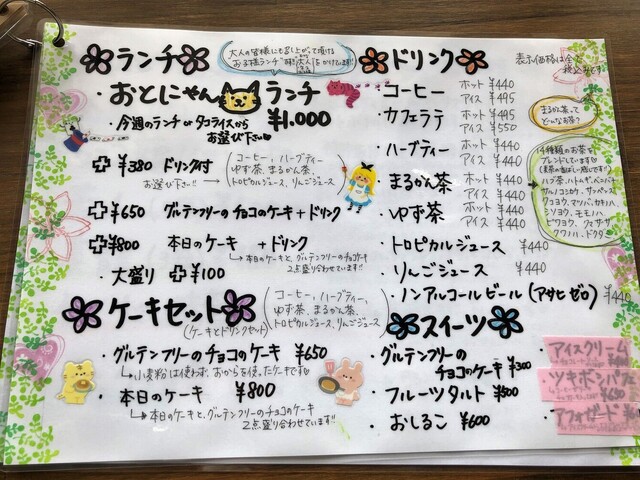 ランチ
大人の皆様にも召し上がって頂ける
おとにゃんランチ ¥1.000
・今週のランチ or タコライスから
お選び下さい
＋¥380 ドリンク付
お選び下さい!! →
(コーヒー、ハーブティー
ゆず茶、まるかん茶、
トロピカルジュース、りんごジュース)
＋¥650 グルテンフリーのチョコのケーキ＋ドリンク
＋¥800 本日のケーキ ＋ドリンク
↳本日のケーキとグルテンフリーのチョコケーキ
2点盛り合わせています!!
・大盛り ＋¥100
ケーキセット
(ケーキとドリンクセット)
(コーヒー、ハーブティー、
ゆず茶、まるかん茶、
トロピカルジュース、りんごジュース)
・グルテンフリーのチョコのケーキ ¥650
↳小麦粉は使わず、おからを使ったケーキです
・本日のケーキ ¥800
↳本日のケーキと、グルテンフリーのチョコのケーキ
2点盛り合わせています!!
ドリンク
表示価格は全て
税込みです
・コーヒー ホット ¥440
アイス ¥495
・カフェラテ ホット ¥495
アイス ¥550
・ハーブティー ホット ¥440
アイス ¥440
・まるかん茶 ホット ¥440
アイス ¥440
・ゆず茶 ホット ¥440
アイス ¥440
・トロピカルジュース ¥440
・りんごジュース ¥440
・ノンアルコールビール (アサヒゼロ) ¥440
まるかん茶って
どんなお茶?
14種類のお茶を
ブレンドしています
ハブ茶、ハトムギ、ペパーミント
スイーツ
・グルテンフリーの
チョコのケーキ ¥300
・フルーツタルト ¥500
・おしるこ ¥600
アイスクリーム
・アフォガード